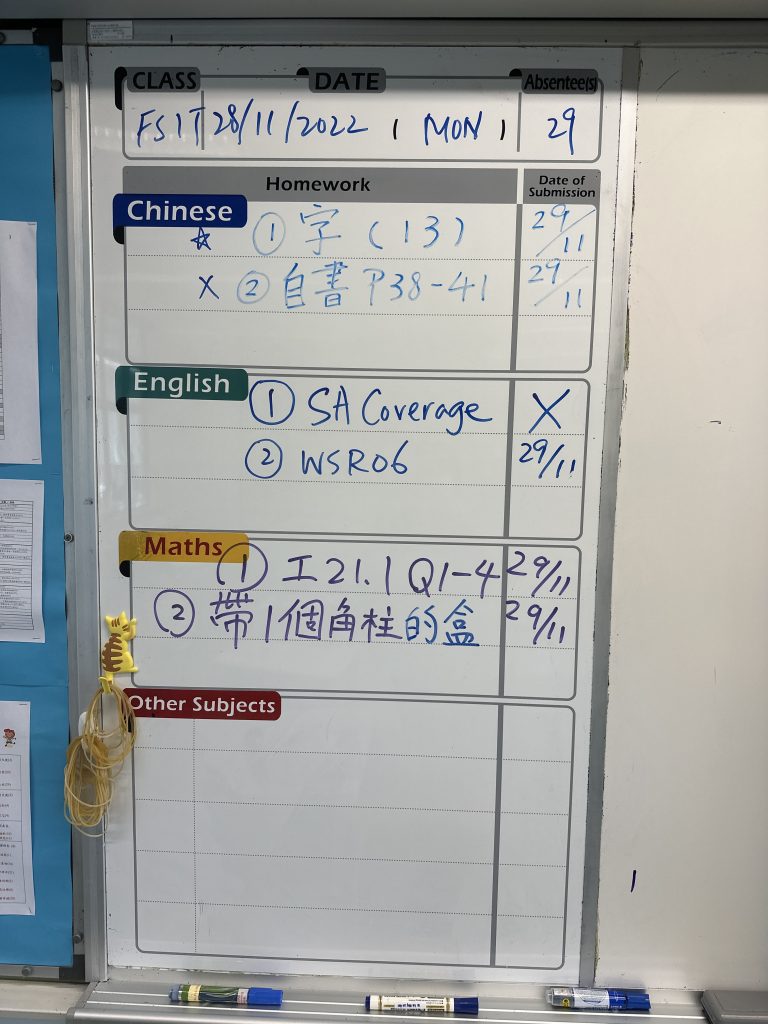 CLASS DATE Absentee(s)
FS1T 28/11/2022 ( MON ) 29
Homework Date of Submission
Chinese
☆ ① 字 (13) 29/11
X ② 自書 P38-41 29/11
English
① SA Coverage X
② WSR06 29/11
Maths
① 工21.1 Q1-4 29/11
② 帶1個角柱的盒 29/11
Other Subjects